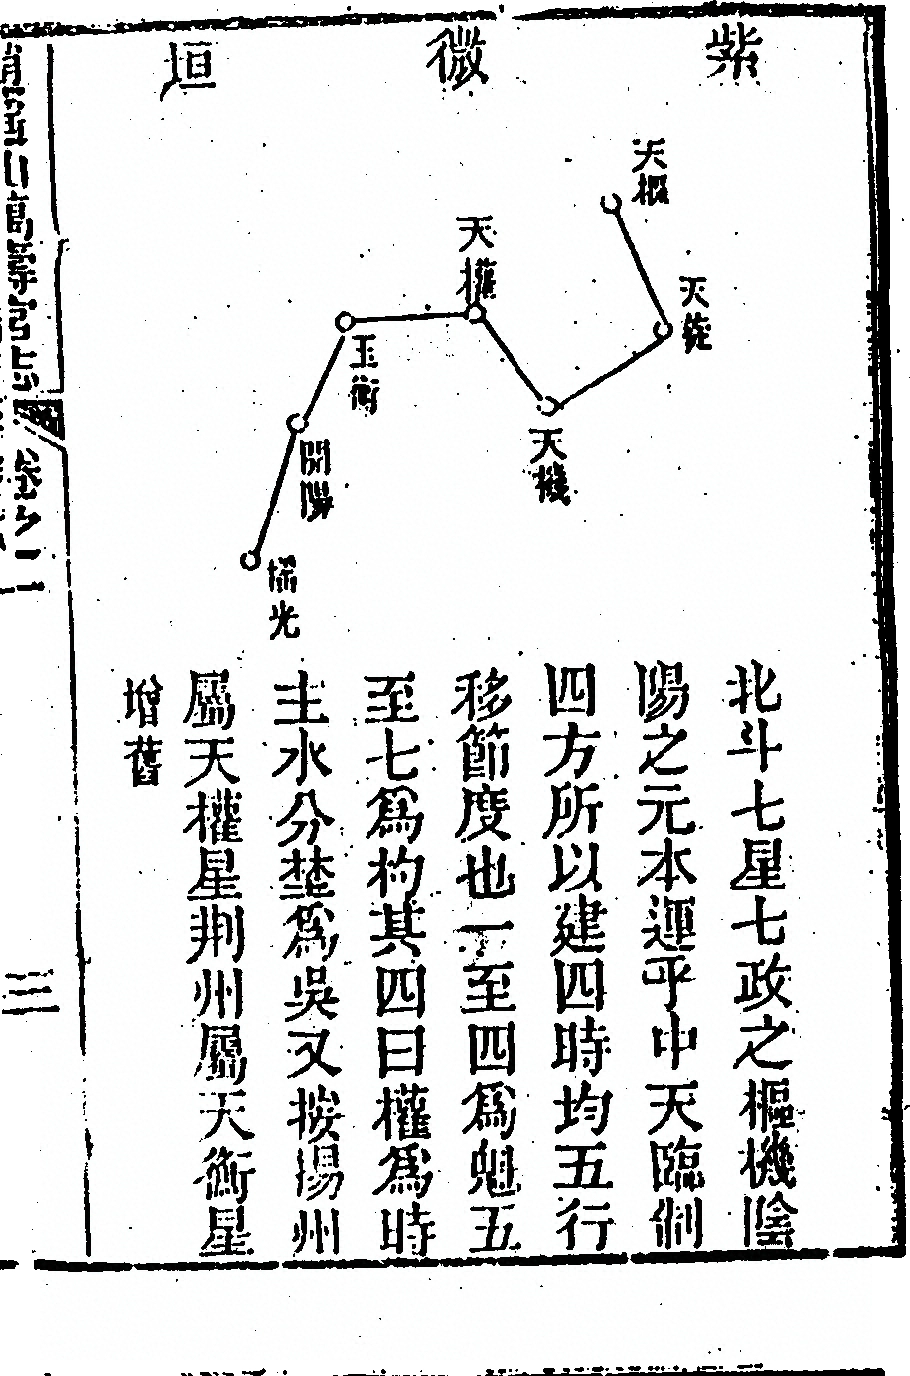 紫微垣
天樞
天璇
天機
天權
玉衡
開陽
搖光
北斗七星七政之樞機陰
陽之元本運乎中天臨制
四方所以建四時均五行
移節度也一至四爲魁五
至七爲杓其四曰權爲時
主水分埜爲吳又按揚州
屬天權星荆州屬天衡星
增舊
卷之二
三